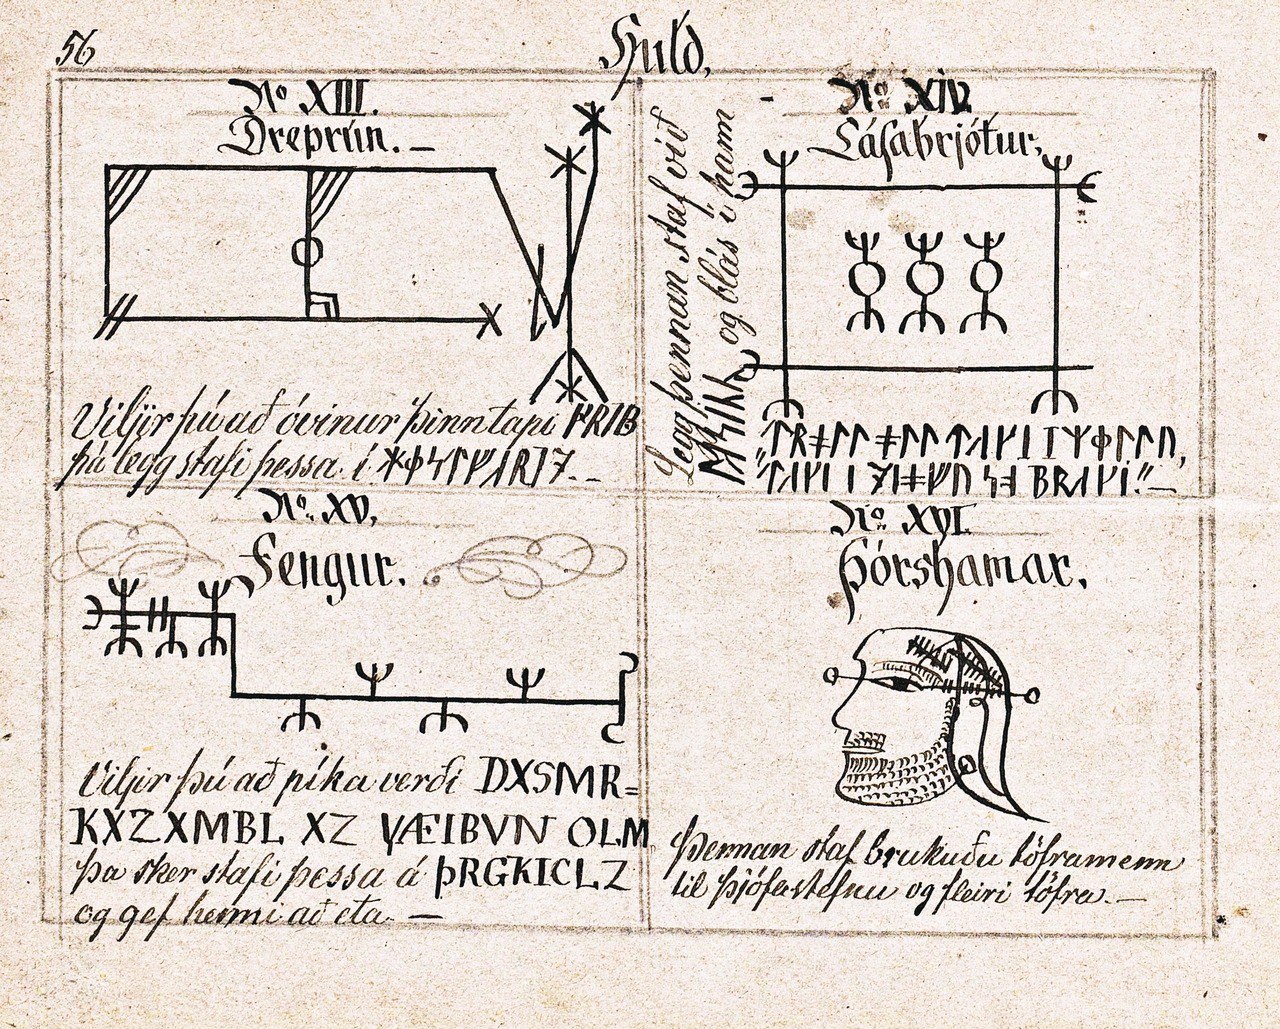 56
Huld.
No XIII.
Dreprún. —
Viljir þú að óvinur þinn tapi
þá legg stafi þessa í
No XIV.
Lásabrjótur.
Legg þennan staf við
og blás í ham
No. XV.
Fengur.
Viljir þú að píka verði DXSMR=
KXZXMBL XZ YÆIBVN OLM
þa sker stafi þessa á ÞRGKICLZ
og gef henni að eta. —
No. XVI.
Þórshamar.
Þennan staf brukuðu töframenn
til þjófastefnu og fleiri töfra. —